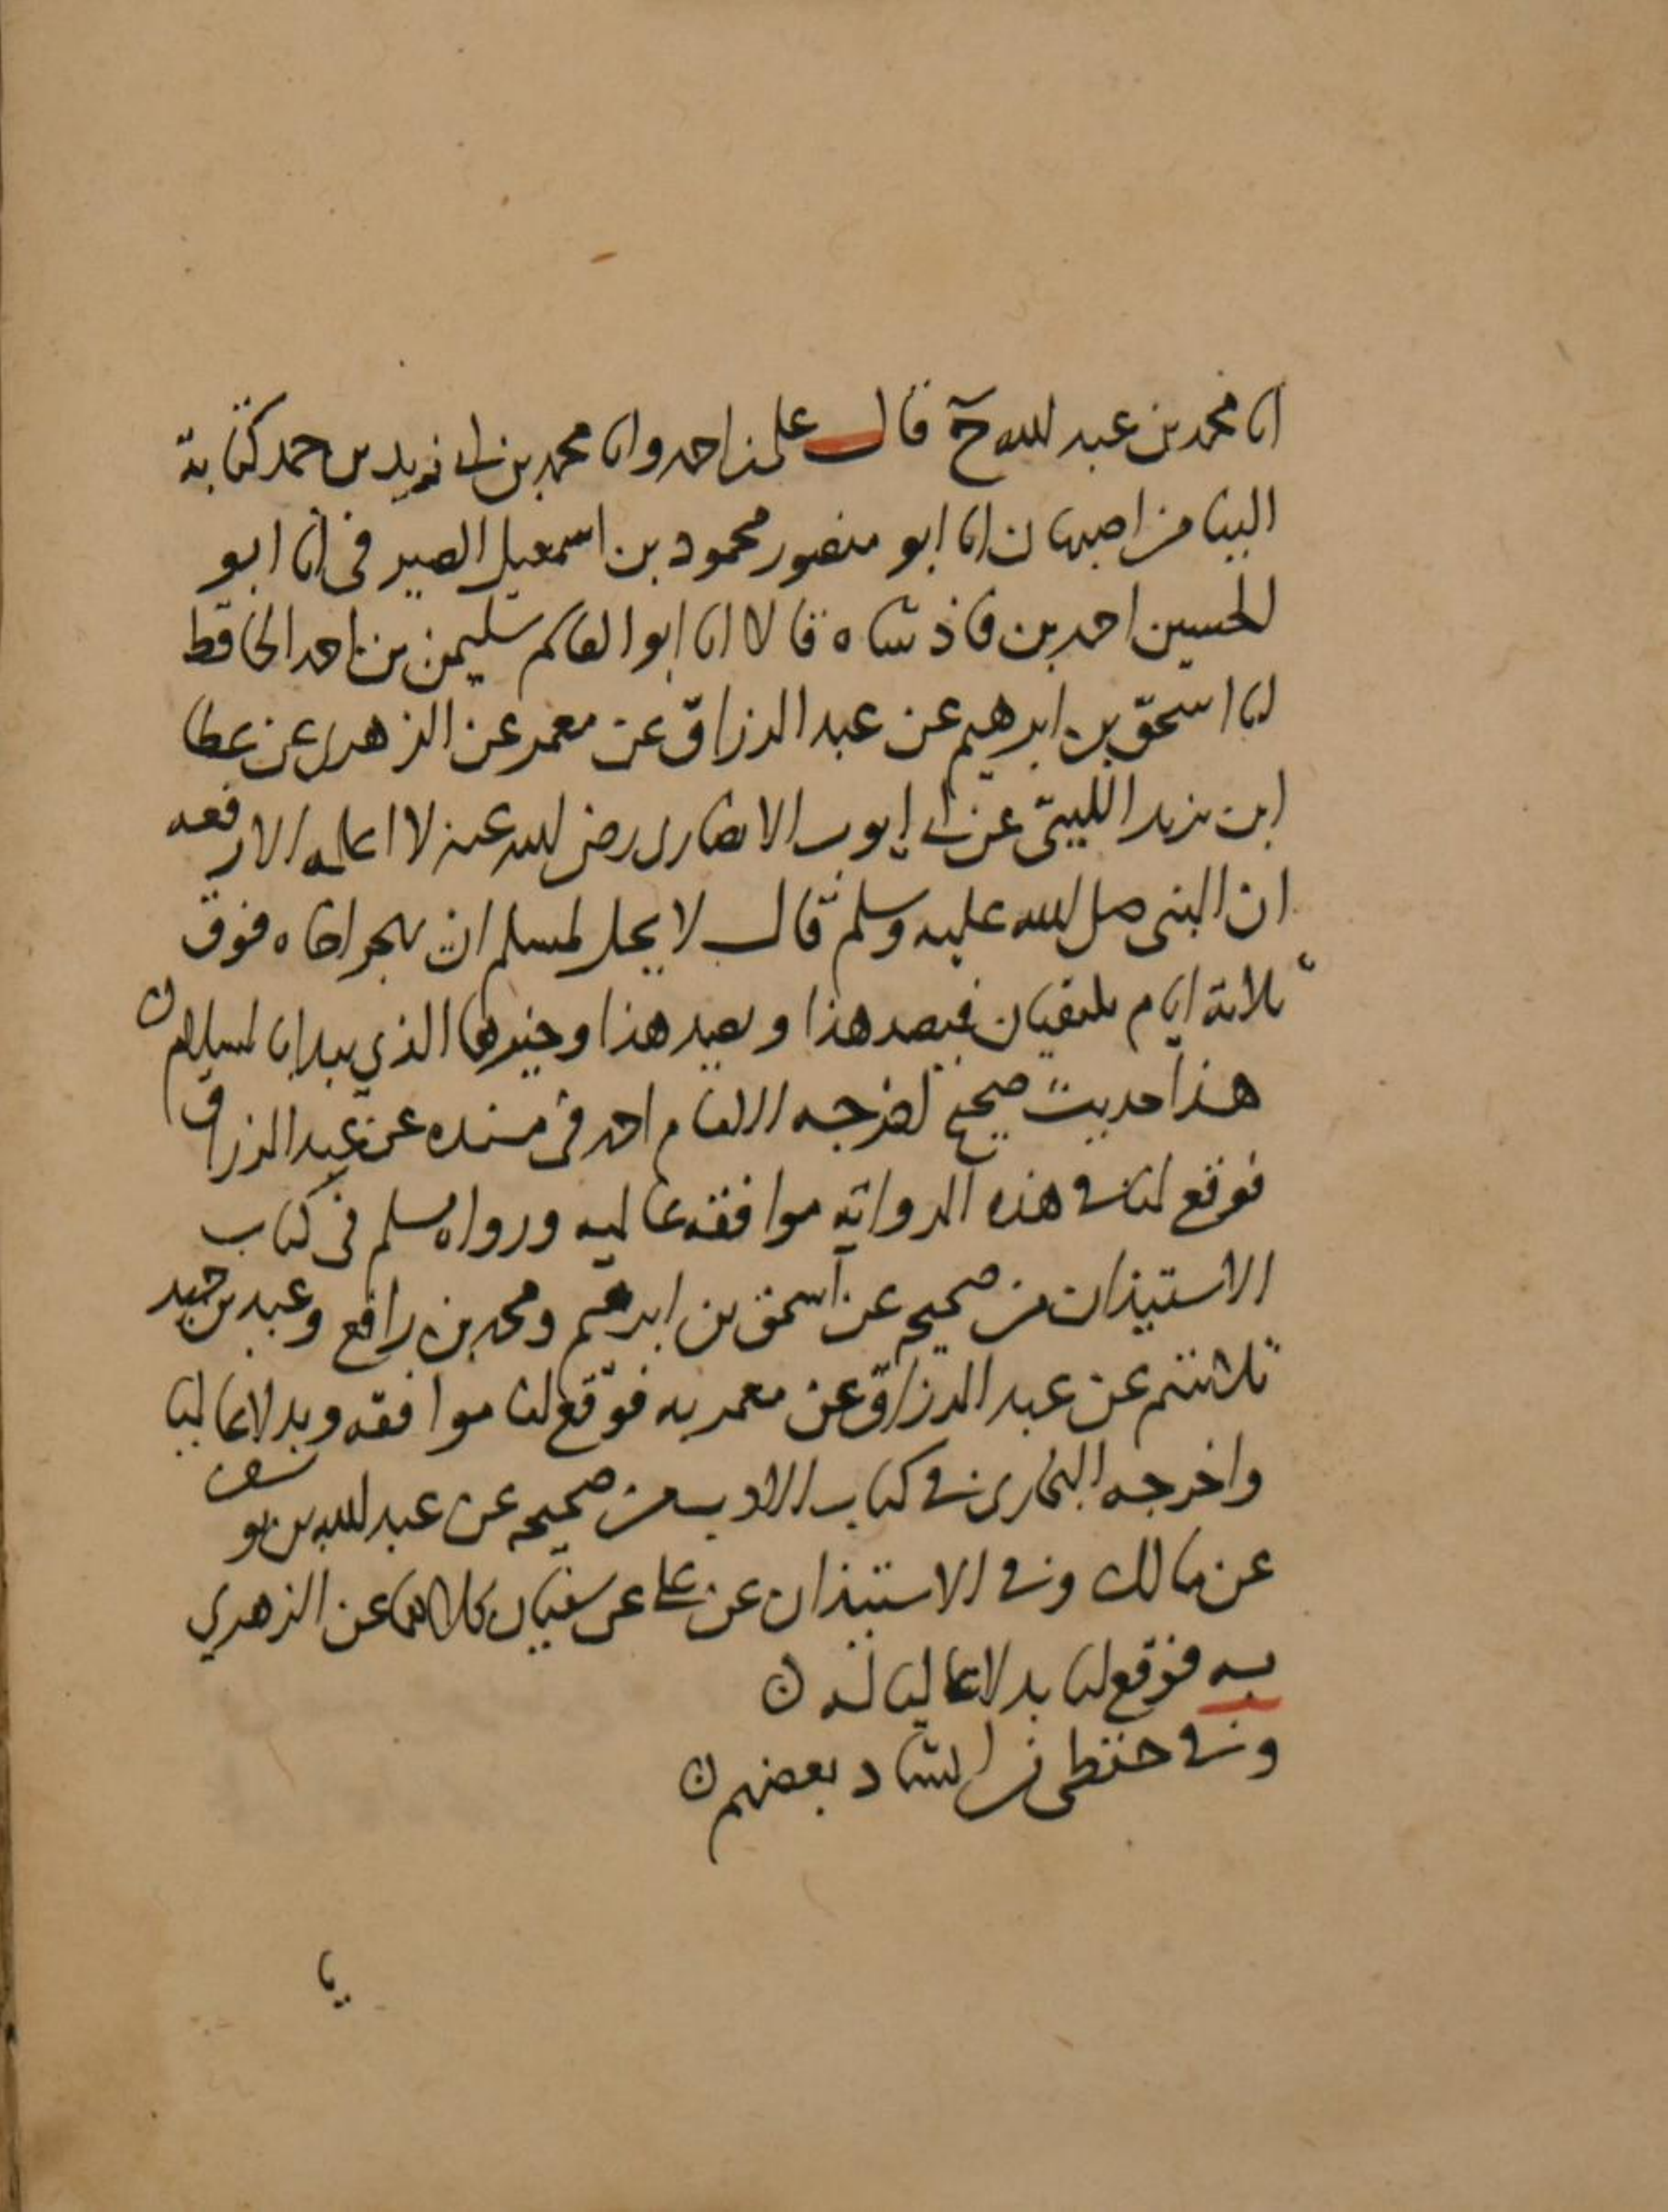 انا محمد بن عبد الله ح قال علي بن احمد وانا محمد بن ابي زيد بن حمد كتابة
الينا من اصبهان انا ابو منصور محمود بن اسمعيل الصيرفي انا ابو
الحسين احمد بن فاذشاه قالا انا ابو القاسم سليمن بن احمد الحافظ
انا اسحق بن ابرهيم عن عبد الرزاق عن معمر عن الزهري عن عطا
ابن يزيد الليثي عن ابي ايوب الانصاري رضي الله عنه لا اعلمه الا رفعه
ان النبي صلى الله عليه وسلم قال لا يحل لمسلم ان يهجر اخاه فوق
ثلاثة ايام يلتقيان فيصد هذا ويصد هذا وخيرهما الذي يبدا بالسلام ن
هذا حديث صحيح اخرجه الامام احمد في مسنده عن عبد الرزاق
فوقع لنا في هذه الرواية موافقه عاليه ورواه مسلم في كتاب
الاستيذان من صحيحه عن اسحق بن ابرهيم ومحمد بن رافع وعبد بن حميد
ثلاثتهم عن عبد الرزاق عن معمر به فوقع لنا موافقه وبدلا عاليا
واخرجه البخاري في كتاب الادب من صحيحه عن عبد الله بن يوسف
عن مالك وفي الاستيذان عن علي عن سفيان كلاهما عن الزهري
به فوقع لنا بدلا عاليا له ن
وفي حفظي في بعضهم ن